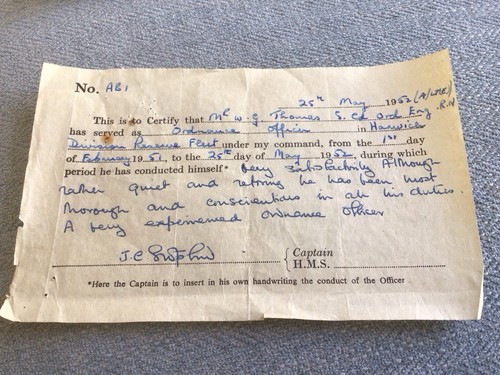 No. AB1
25th May 1952 (A/LTE)
This is to Certify that Mr W. G. Thomas S. Cd Ord. Eng R.N
has served as Ordnance Officer in Harwich
Division Reserve Fleet under my command, from the 1st day
of February 1951, to the 25th day of May 1952, during which
period he has conducted himself* very satisfactorily Although
rather quiet and retiring he has been most
thorough and conscientious in all his duties.
A very experienced Ordnance Officer
J. C.
Captain
H.M.S.
*Here the Captain is to insert in his own handwriting the conduct of the Officer